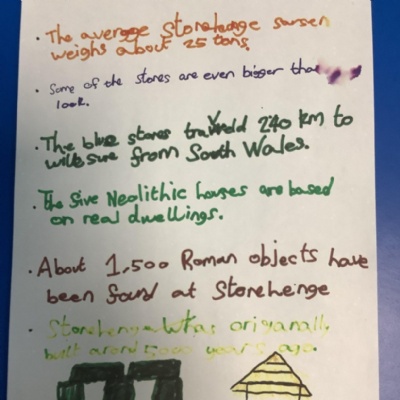 • The average Stonehenge sarsen
weighs about 25 tons
• Some of the stones are even bigger than
look.
• The blue stones travield 240 km to
wilksure from South Wales.
• The five Neolithic houses are based
on real dwellings.
• About 1,500 Roman objects have
been found at Stonehenge
• Stonehenge Whas origanally
built arond 5,000 years ago.